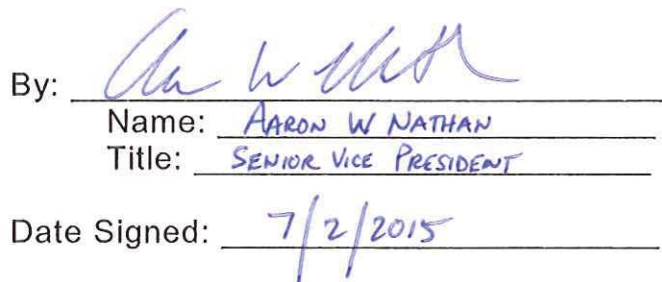 By: Aaron W Nathan
Name: AARON W NATHAN
Title: SENIOR VICE PRESIDENT
Date Signed: 7/2/2015